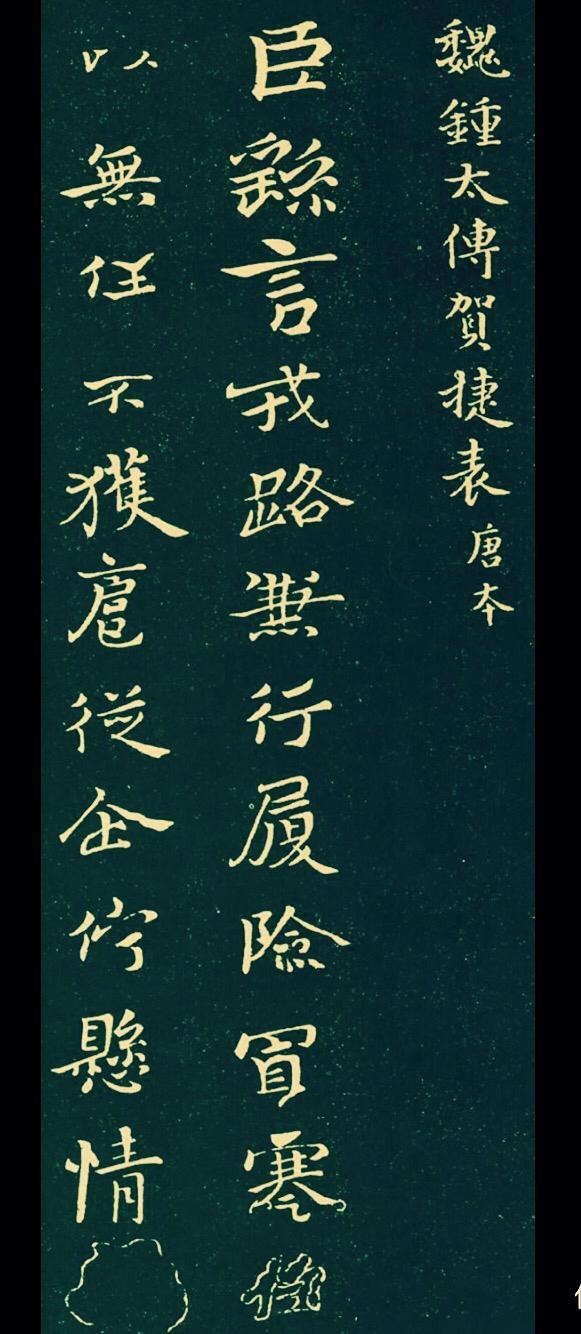 魏鍾太傅賀捷表 唐本
臣繇言戎路兼行履險冒寒
以無任不獲扈從企佇懸情